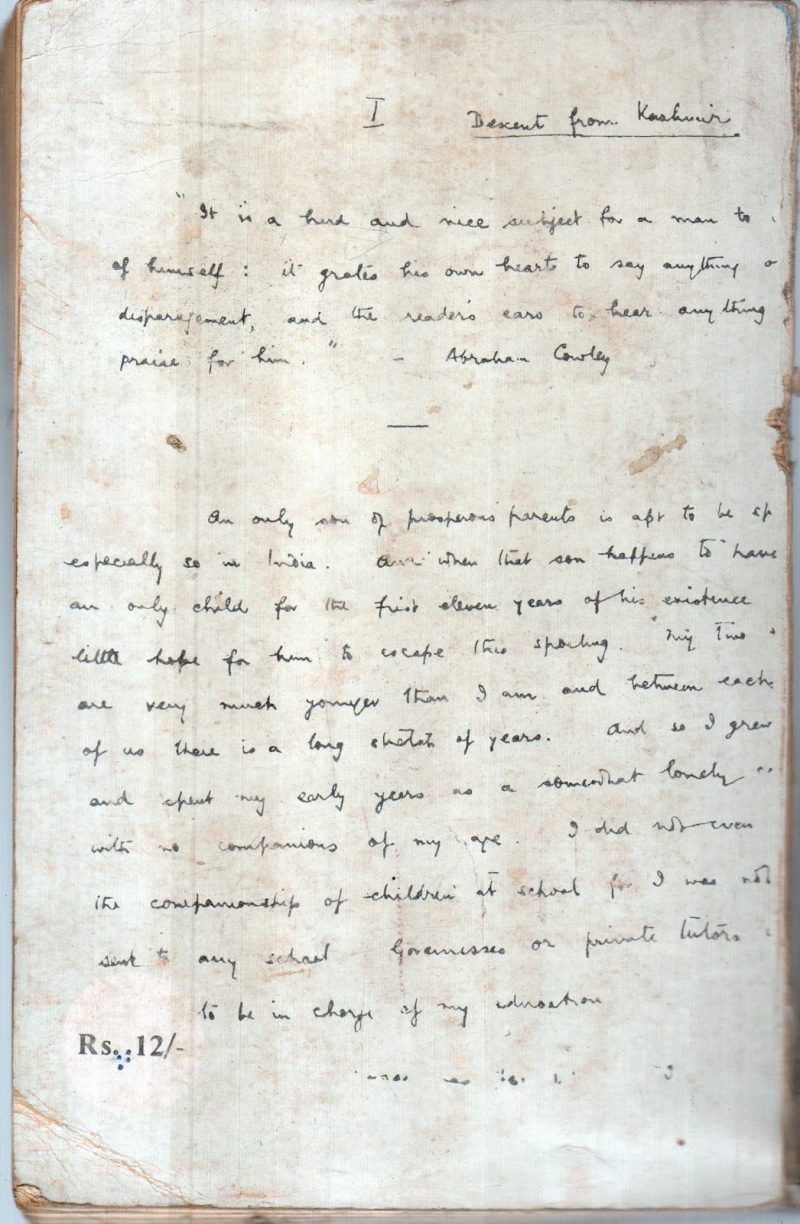 I Descent from Kashmir
"It is a hard and nice subject for a man to
of himself: it grates his own heart to say anything o
disparagement, and the reader's ears to hear anything
praise for him." - Abraham Cowley
An only son of prosperous parents is apt to be sp
especially so in India. And when that son happens to have
an only child for the first eleven years of his existence
little hope for him to escape this spoiling. My two s
are very much younger than I am and between each
of us there is a long stretch of years. And so I grew
and spent my early years as a somewhat lonely
with no companions of my age. I did not even
the companionship of children at school for I was not
sent to any school Governesses or private tutors
to be in charge of my education
Rs. 12/-